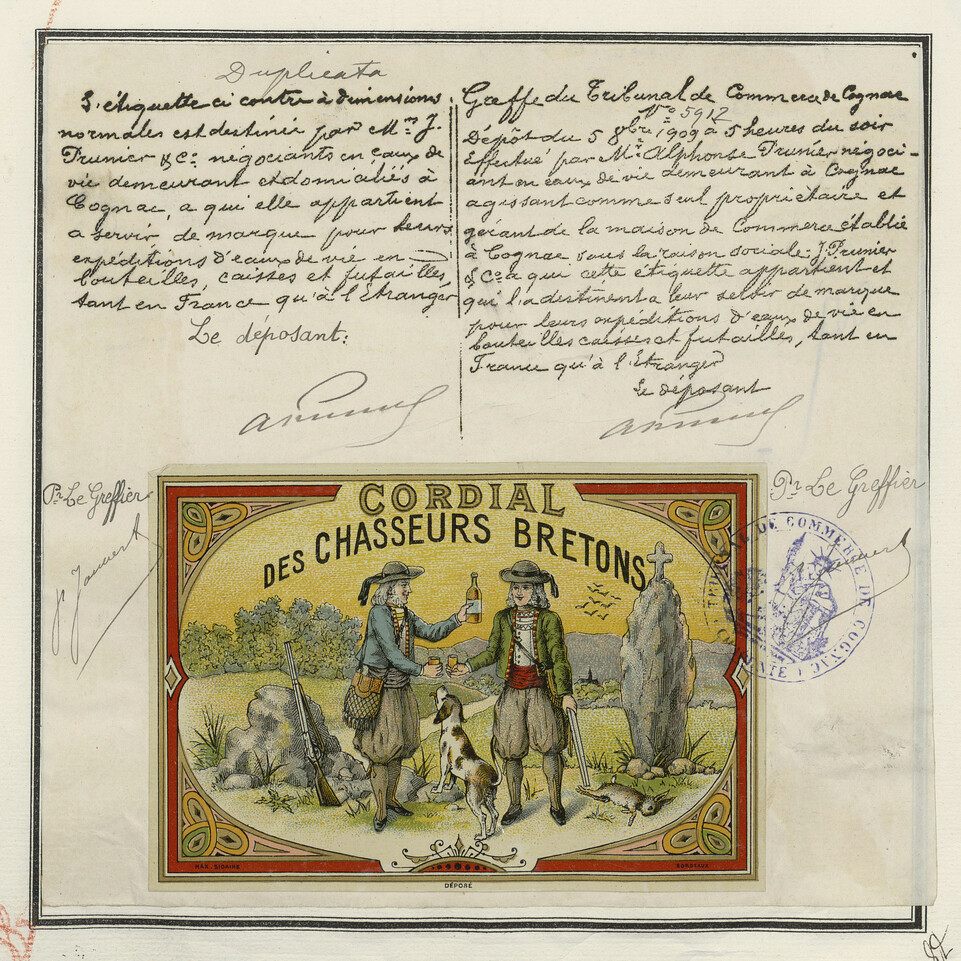 Duplicata
L'étiquette ci contre à dimensions
normales est destinée par Mrs J.
Prunier & Cie négociants en eaux de
vie demeurant et domiciliés à
Cognac, a qui elle appartient
a servir de marque pour leurs
expéditions d'eaux de vie en
bouteilles, caisses et futailles,
tant en France qu'à l'Etranger
Le déposant:
APrunier
Greffe du Tribunal de Commerce de Cognac
No 5912
Dépôt du 5 8bre 1909 à 5 heures du soir
Effectué par Mr Alphonse Prunier négoci-
ant en eaux de vie demeurant à Cognac
agissant comme seul propriétaire et
gérant de la maison de Commerce établie
à Cognac sous la raison sociale: J. Prunier
& Co a qui cette étiquette appartient et
qui l'a destinent a leur servir de marque
pour leurs expéditions d'eaux de vie en
bouteilles caisses et futailles, tant en
France qu'à l'Etranger
Le déposant
APrunier
Pr Le Greffier
Pr Le Greffier
CORDIAL
DES CHASSEURS BRETONS
TRIBUNAL DE COMMERCE DE COGNAC
DÉPOSÉ
BORDEAUX
82